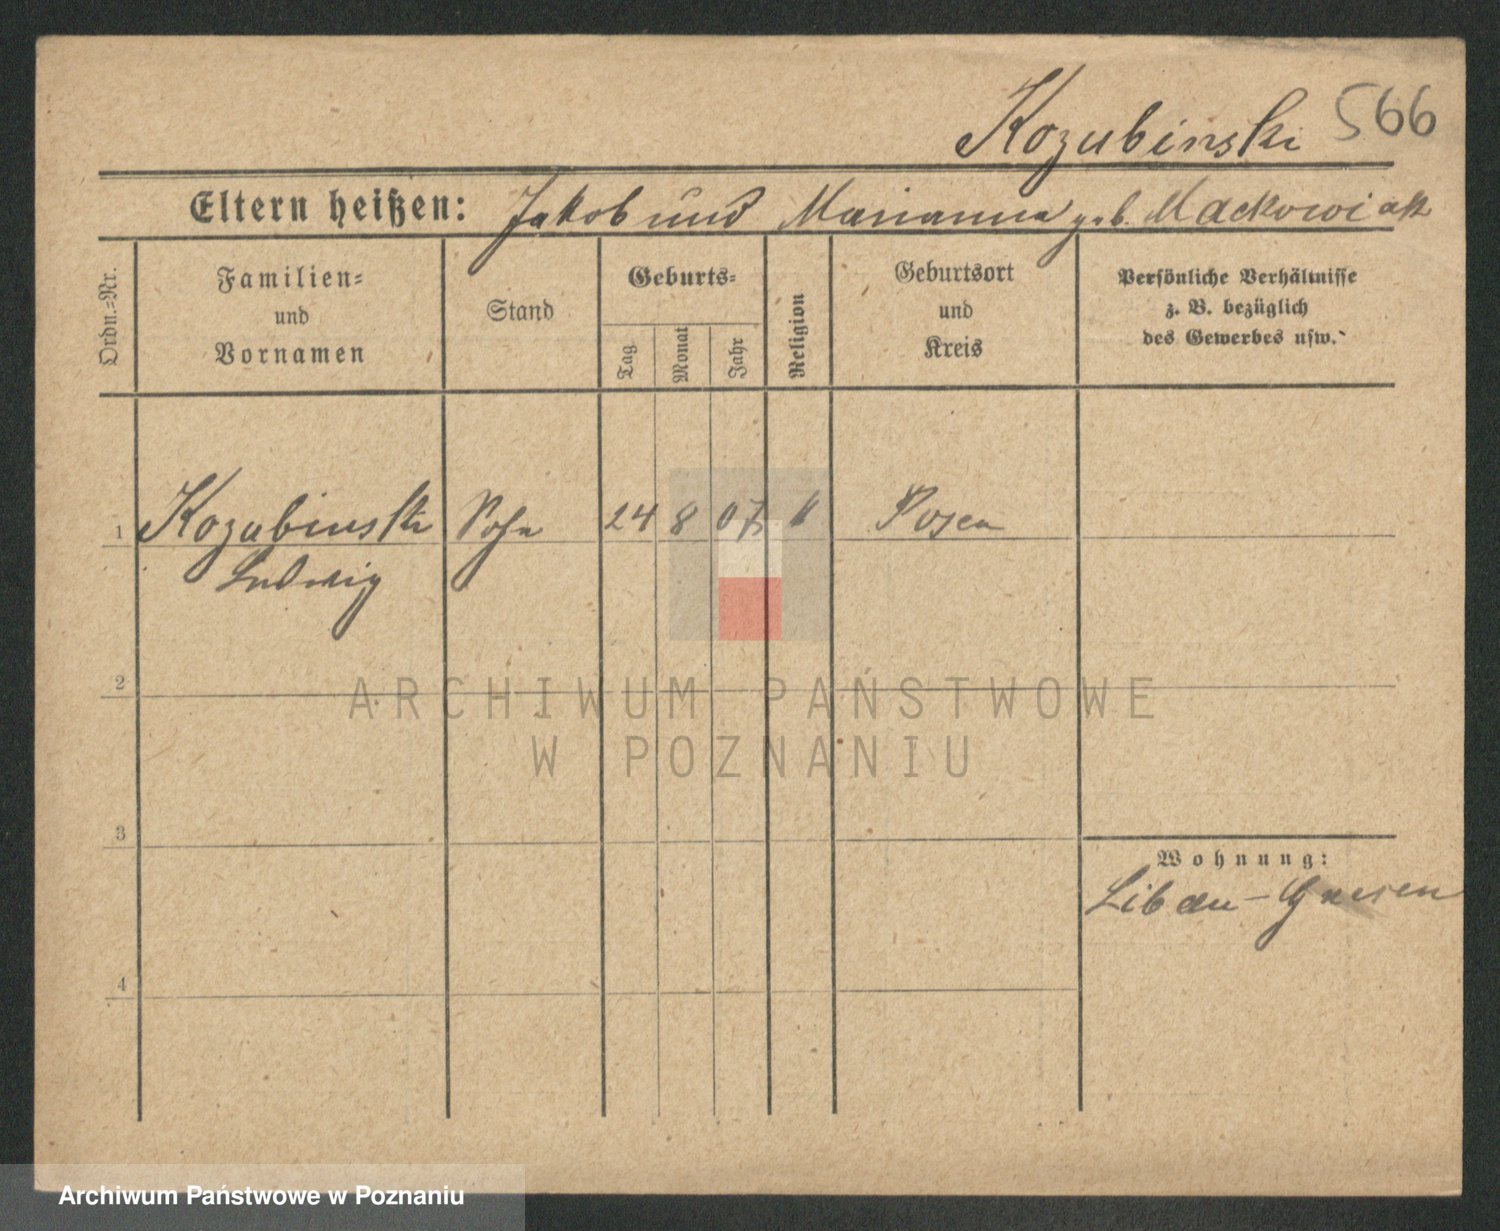 Kozubinski 566
Eltern heißen: Jakob und Marianna geb. Mackowiak
Ordn.=Nr.
Familien=
und
Vornamen
Stand
Geburts=
Tag
Monat
Jahr
Religion
Geburtsort
und
Kreis
Persönliche Verhältnisse
z. B. bezüglich
des Gewerbes usw.
1 Kozubinski Sohn 24 8 07 k Posen
Ludwig
2
ARCHIWUM PAŃSTWOWE
W POZNANIU
3
Wohnung:
Libau-Gnesen
4
Archiwum Państwowe w Poznaniu